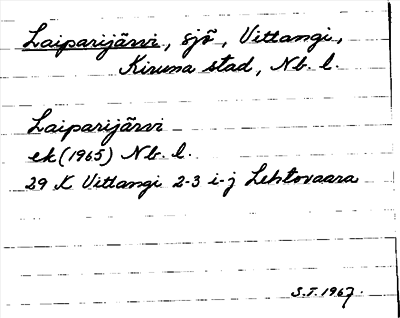 Laiparijärvi, sjö, Vittangi,
Kiruna stad, Nb. l.
Laiparijärvi
ek (1965) Nb. l.
29 K Vittangi 2-3 i-j Lehtovaara
S.T. 1967.